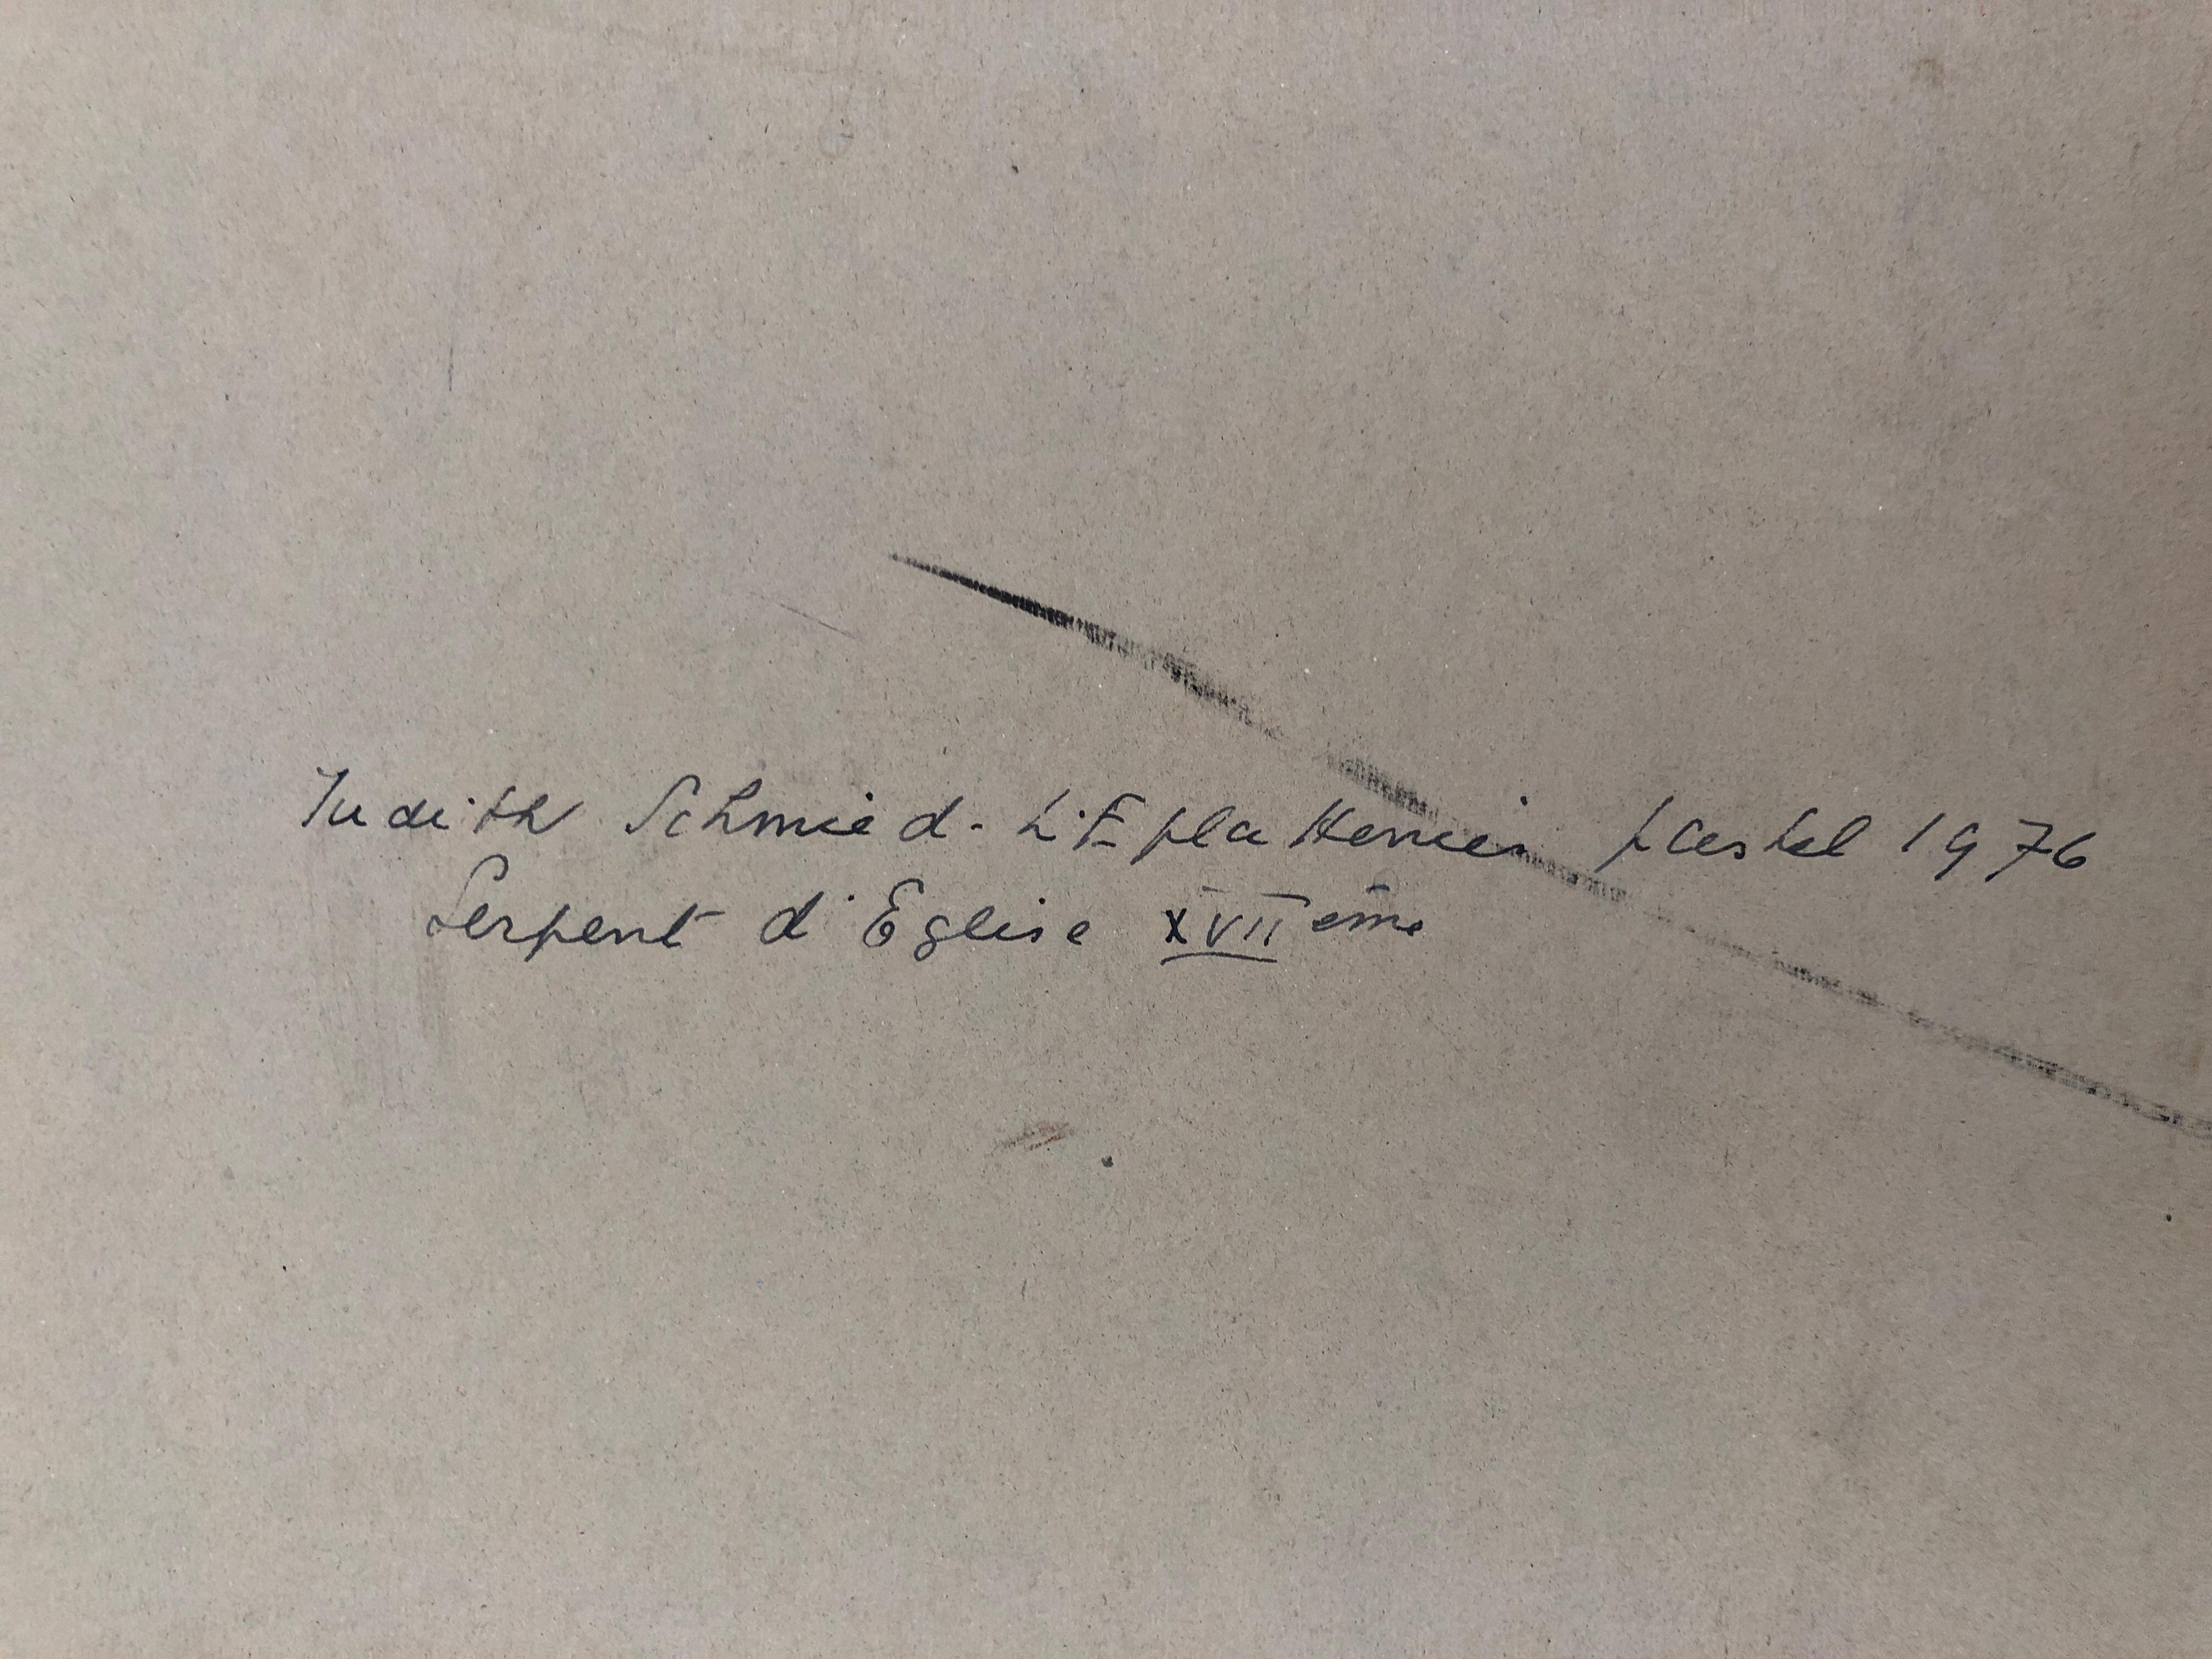 Judith Schmied-L'Eplattenier pastel 1976
Serpent d'Eglise XVIIème